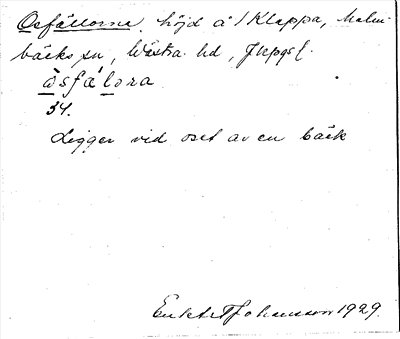 Osfällorna, höjd å / Klappa, Malm-
bäcks sn, Västra hd, Jkpgs l.
òsfæ̀lora
34.
Ligger vid oset av en bäck
Johansson 1929.